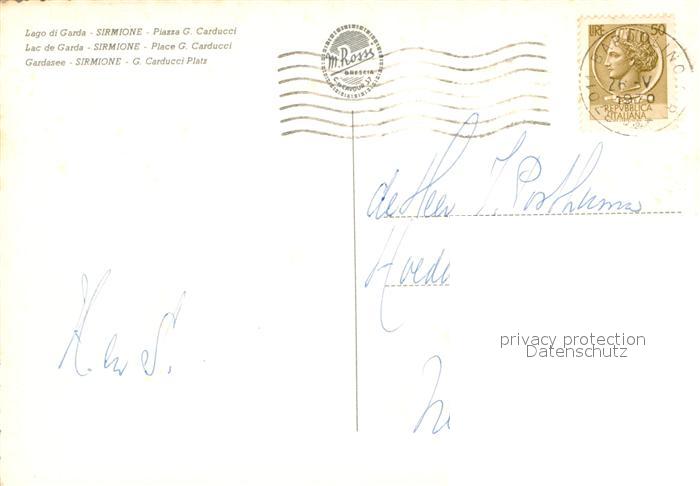 Lago di Garda - SIRMIONE - Piazza G. Carducci
Lac de Garda - SIRMIONE - Place G. Carducci
Gardasee - SIRMIONE - G. Carducci Platz
M. Rossi
BRESCIA
LIRE 50
1970
REPVBBLICA
ITALIANA
de Heer J. Posthuma
privacy protection
Datenschutz